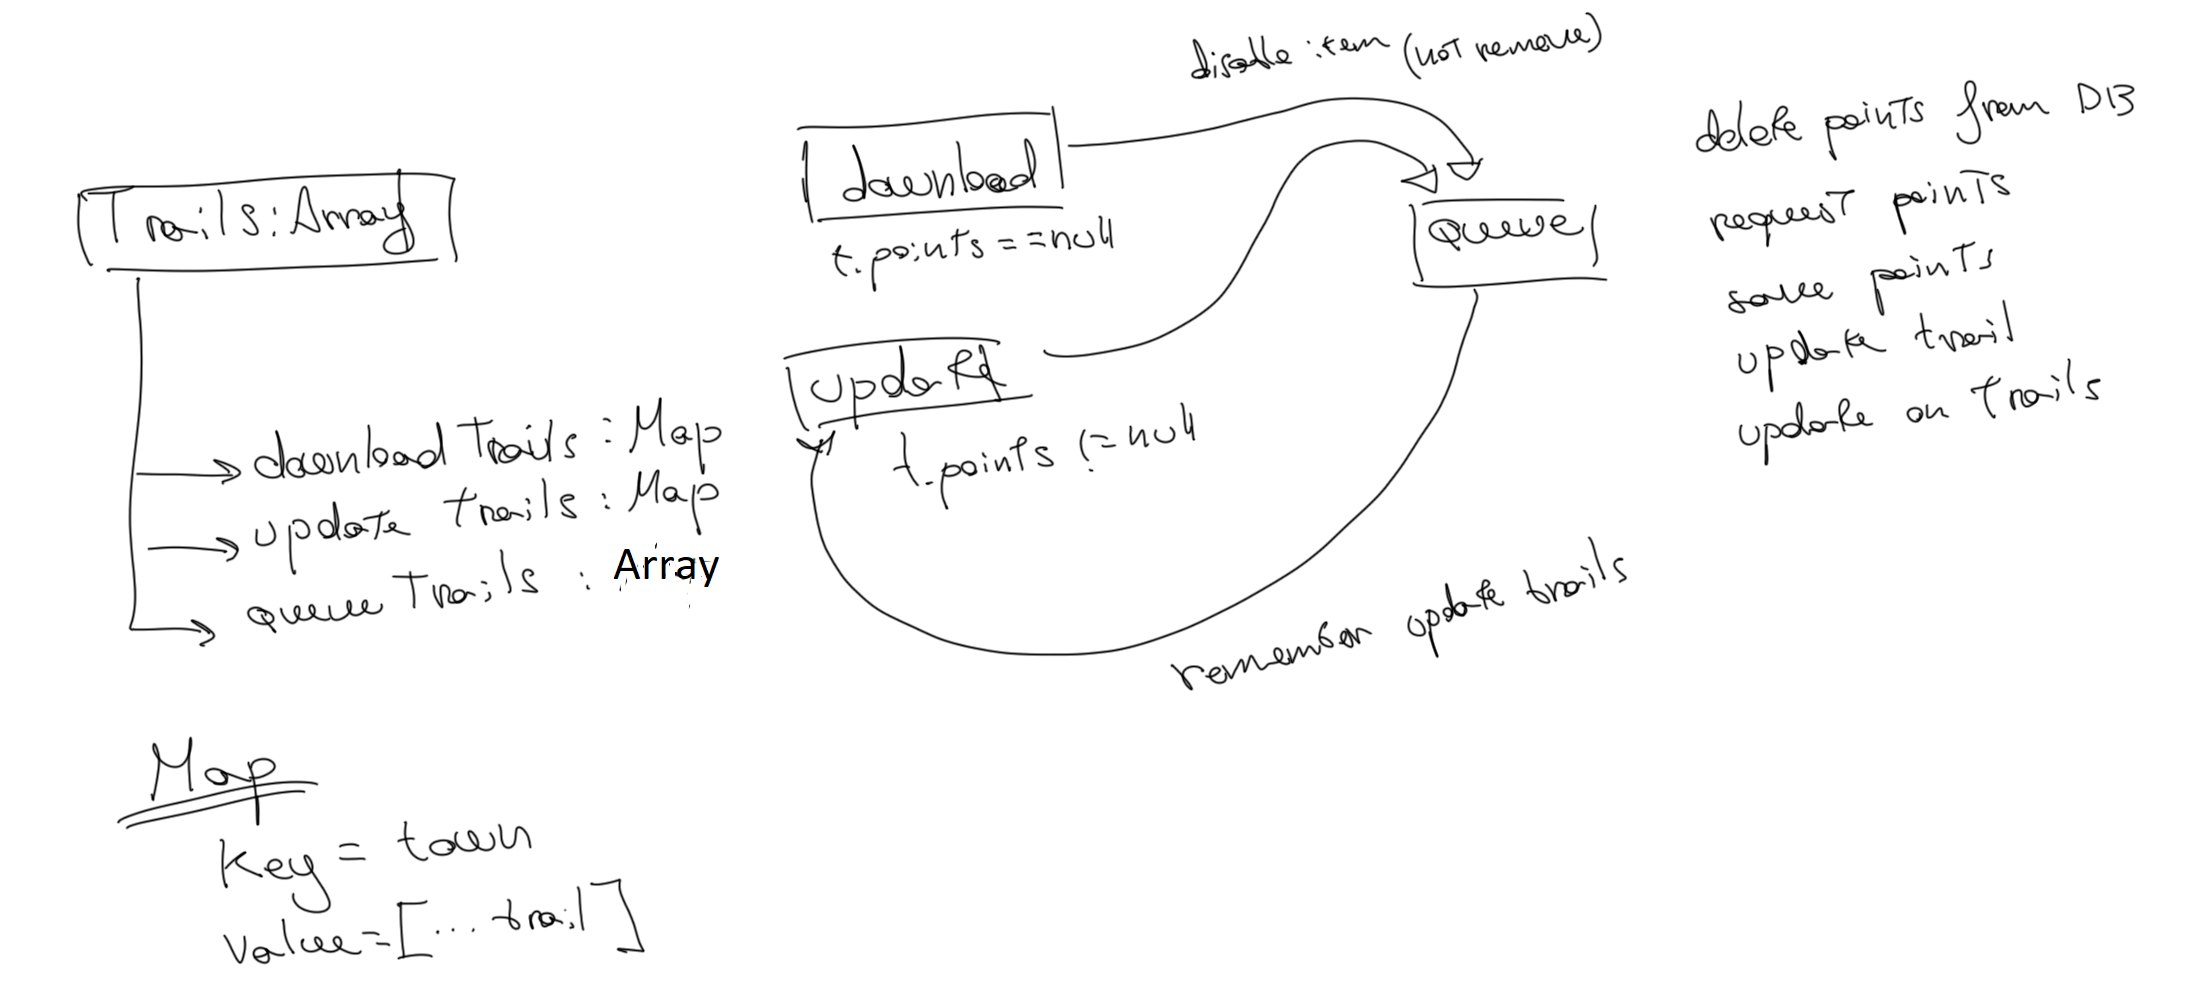 Trails: Array
download Trails : Map
update trails : Map
queue Trails : Array
Map
Key = town
Value = [... trail]
disable item (not remove)
download
t.points == null
update
t.points != null
queue
remember update trails
delete points from DB
request points
save points
update trail
update on Trails